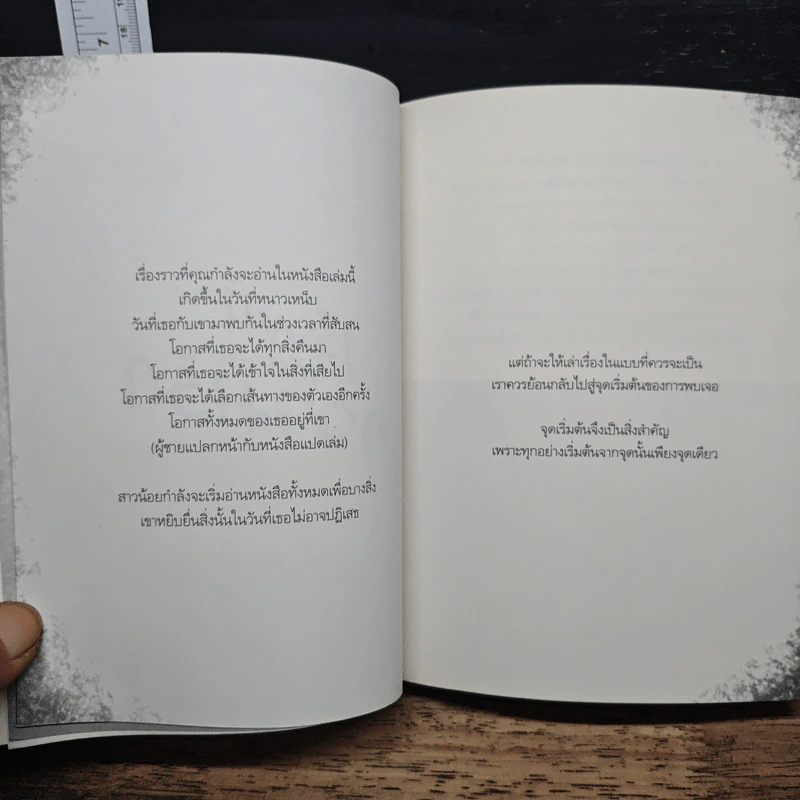 7
18
เรื่องราวที่คุณกำลังจะอ่านในหนังสือเล่มนี้
เกิดขึ้นในวันที่หนาวเหน็บ
วันที่เธอกับเขามาพบกันในช่วงเวลาที่สับสน
โอกาสที่เธอจะได้ทุกสิ่งคืนมา
โอกาสที่เธอจะได้เข้าใจในสิ่งที่เสียไป
โอกาสที่เธอจะได้เลือกเส้นทางของตัวเองอีกครั้ง
โอกาสทั้งหมดของเธออยู่ที่เขา
(ผู้ชายแปลกหน้ากับหนังสือแปดเล่ม)
สาวน้อยกำลังจะเริ่มอ่านหนังสือทั้งหมดเพื่อบางสิ่ง
เขาหยิบยื่นสิ่งนั้นในวันที่เธอไม่อาจปฏิเสธ
แต่ถ้าจะให้เล่าเรื่องในแบบที่ควรจะเป็น
เราควรย้อนกลับไปสู่จุดเริ่มต้นของการพบเจอ
จุดเริ่มต้นจึงเป็นสิ่งสำคัญ
เพราะทุกอย่างเริ่มต้นจากจุดนั้นเพียงจุดเดียว